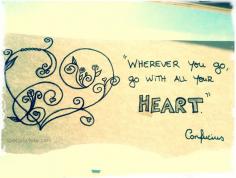 "WHEREVER YOU GO,
GO WITH ALL YOUR
HEART."
Confucius